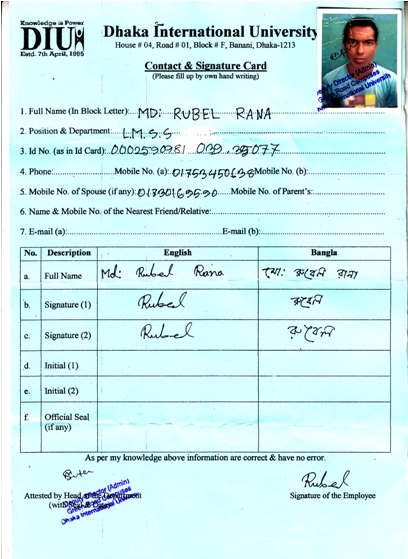 Knowledge is Power
DIU
Estd. 7th April, 1995
Dhaka International University
House # 04, Road # 01, Block # F, Banani, Dhaka-1213
Contact & Signature Card
(Please fill up by own hand writing)
1. Full Name (In Block Letter): MD: RUBEL RANA
2. Position & Department: L.M.S.S
3. Id No. (as in Id Card):
4. Phone: Mobile No. (a): 01753450698 Mobile No. (b):
5. Mobile No. of Spouse (if any): Mobile No. of Parent's:
6. Name & Mobile No. of the Nearest Friend/Relative:
7. E-mail (a): E-mail (b):
No. Description English Bangla
a. Full Name Md: Rubel Rana মো: রুবেল রানা
b. Signature (1) Rubel রুবেল
c. Signature (2) Rubel রুবেল
d. Initial (1)
e. Initial (2)
f. Official Seal
(if any)
As per my knowledge above information are correct & have no error.
Rubel
Attested by Head of the Department
Signature of the Employee
Deputy Director (Admin)
Green Road Campuses
Dhaka International University